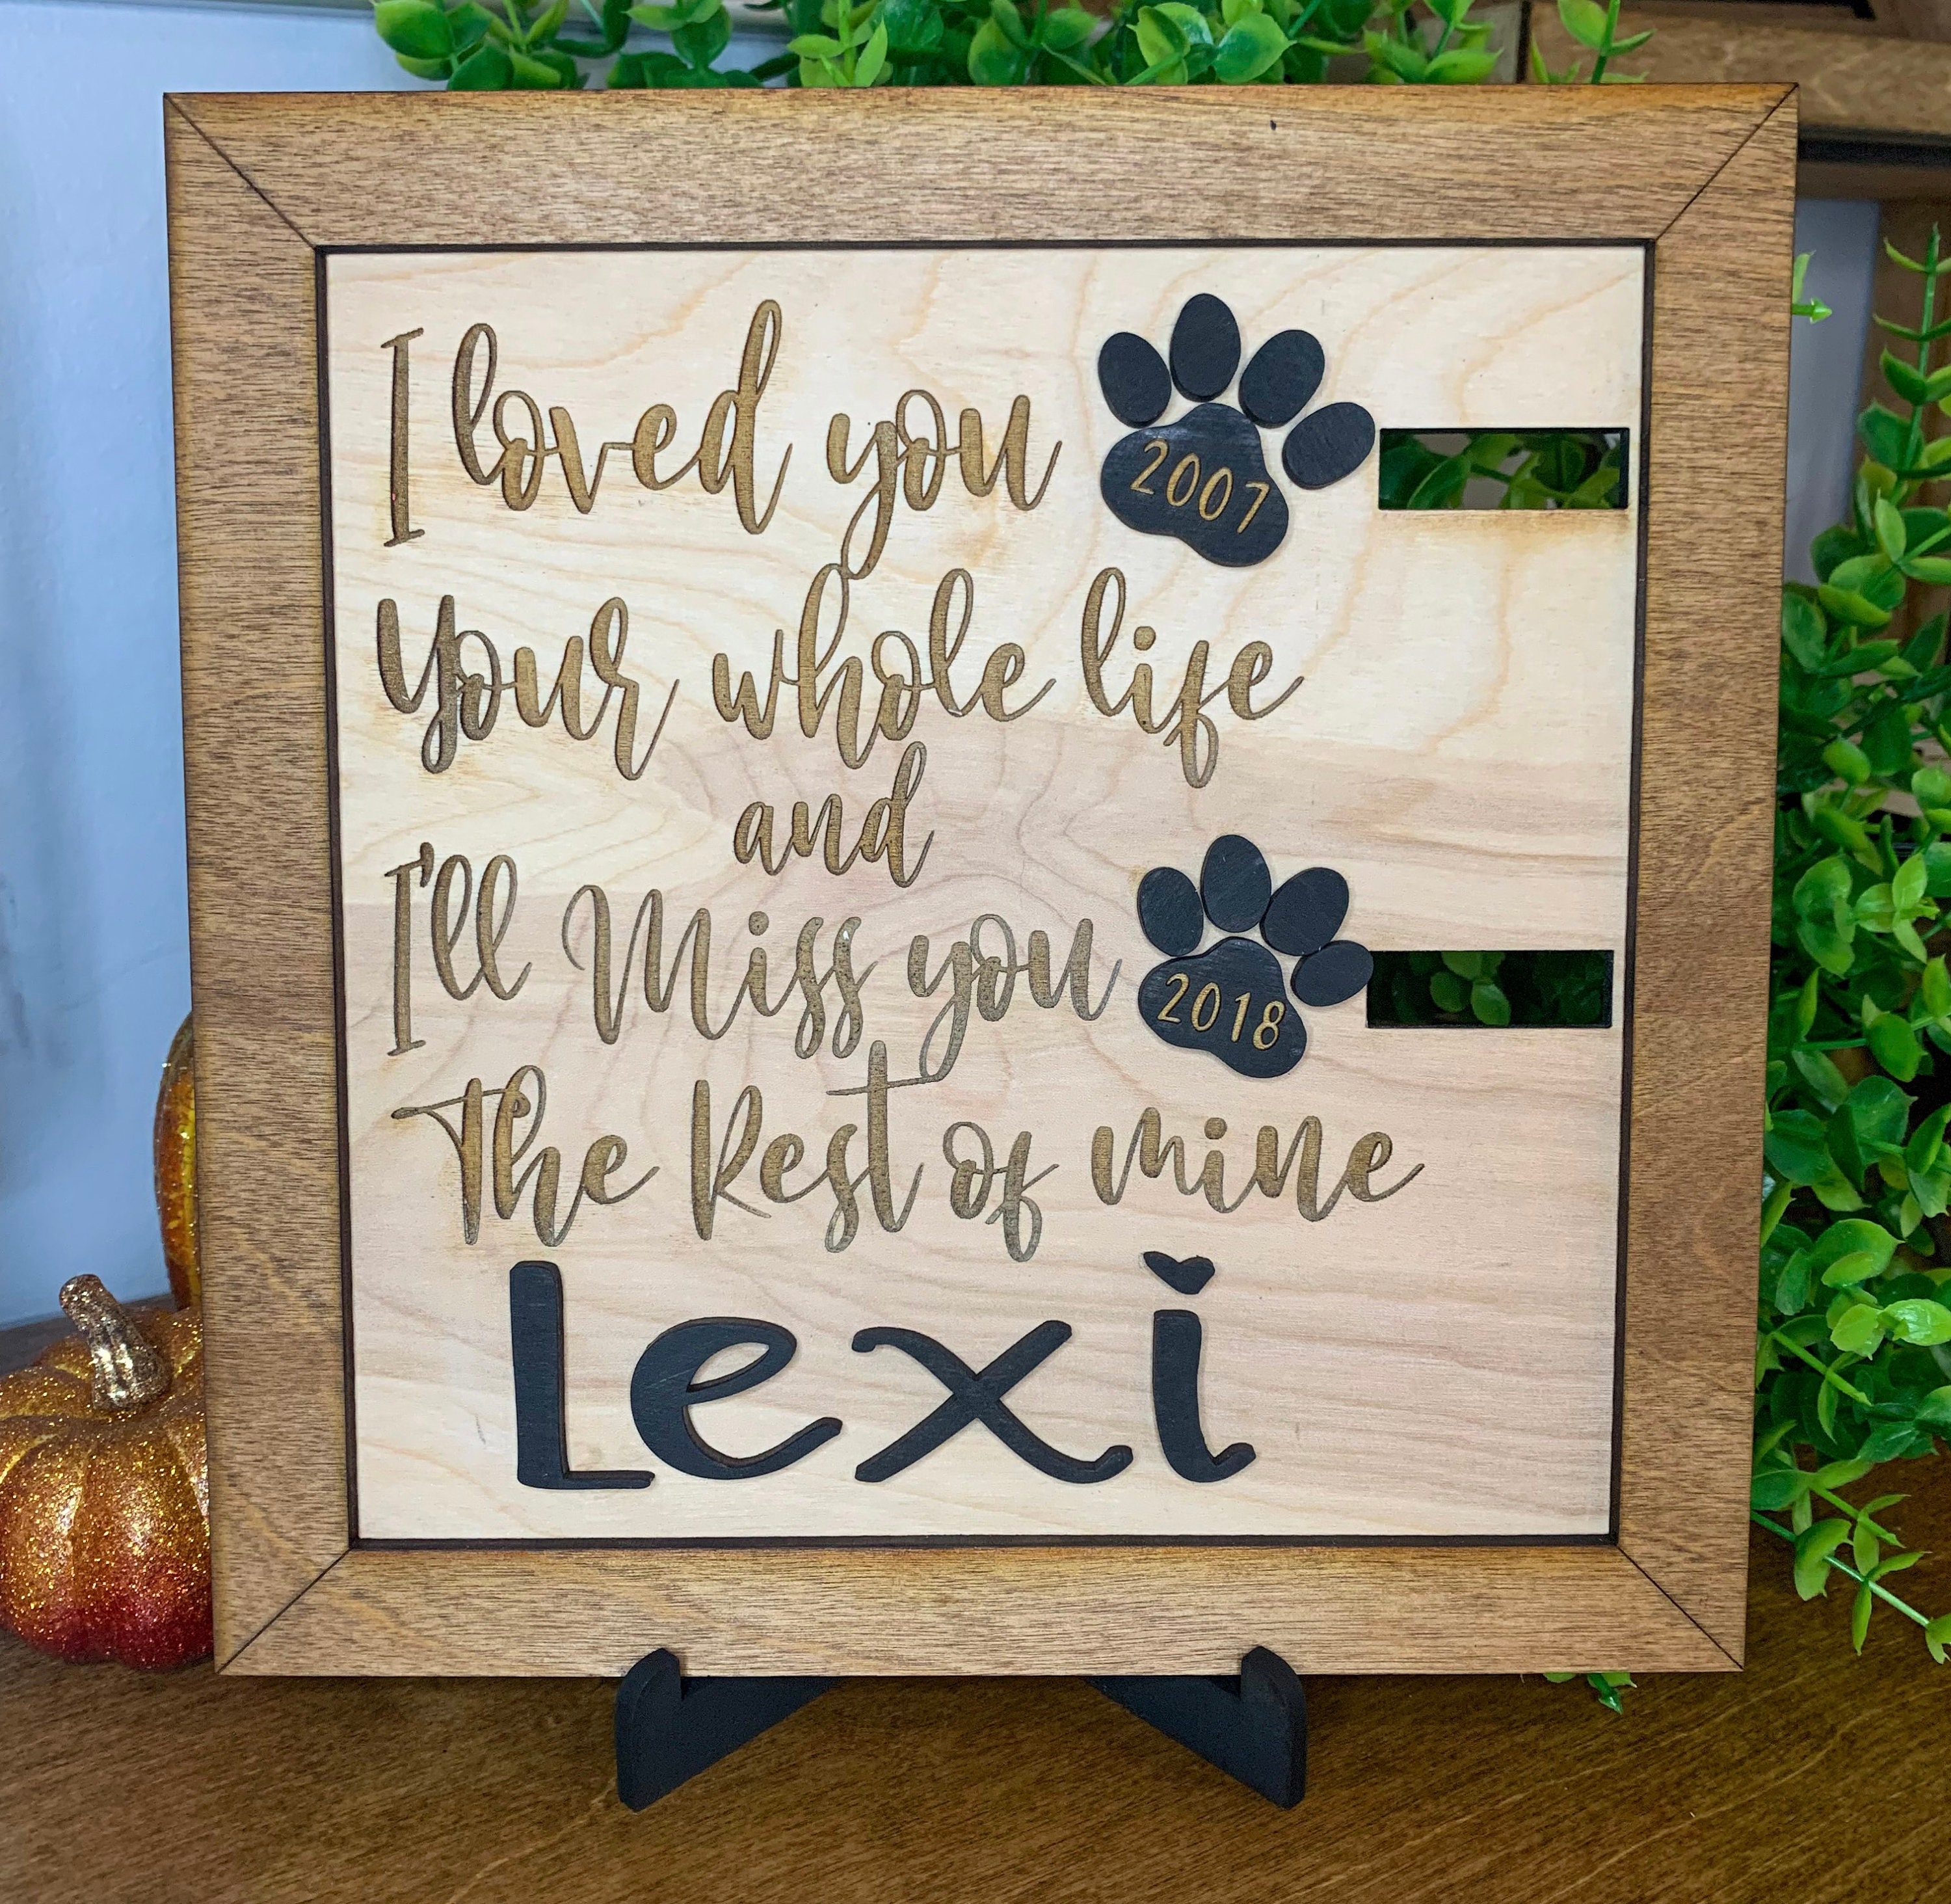 I loved you 2007
Your whole life
and
I'll Miss you 2018
The Rest of mine
Lexi